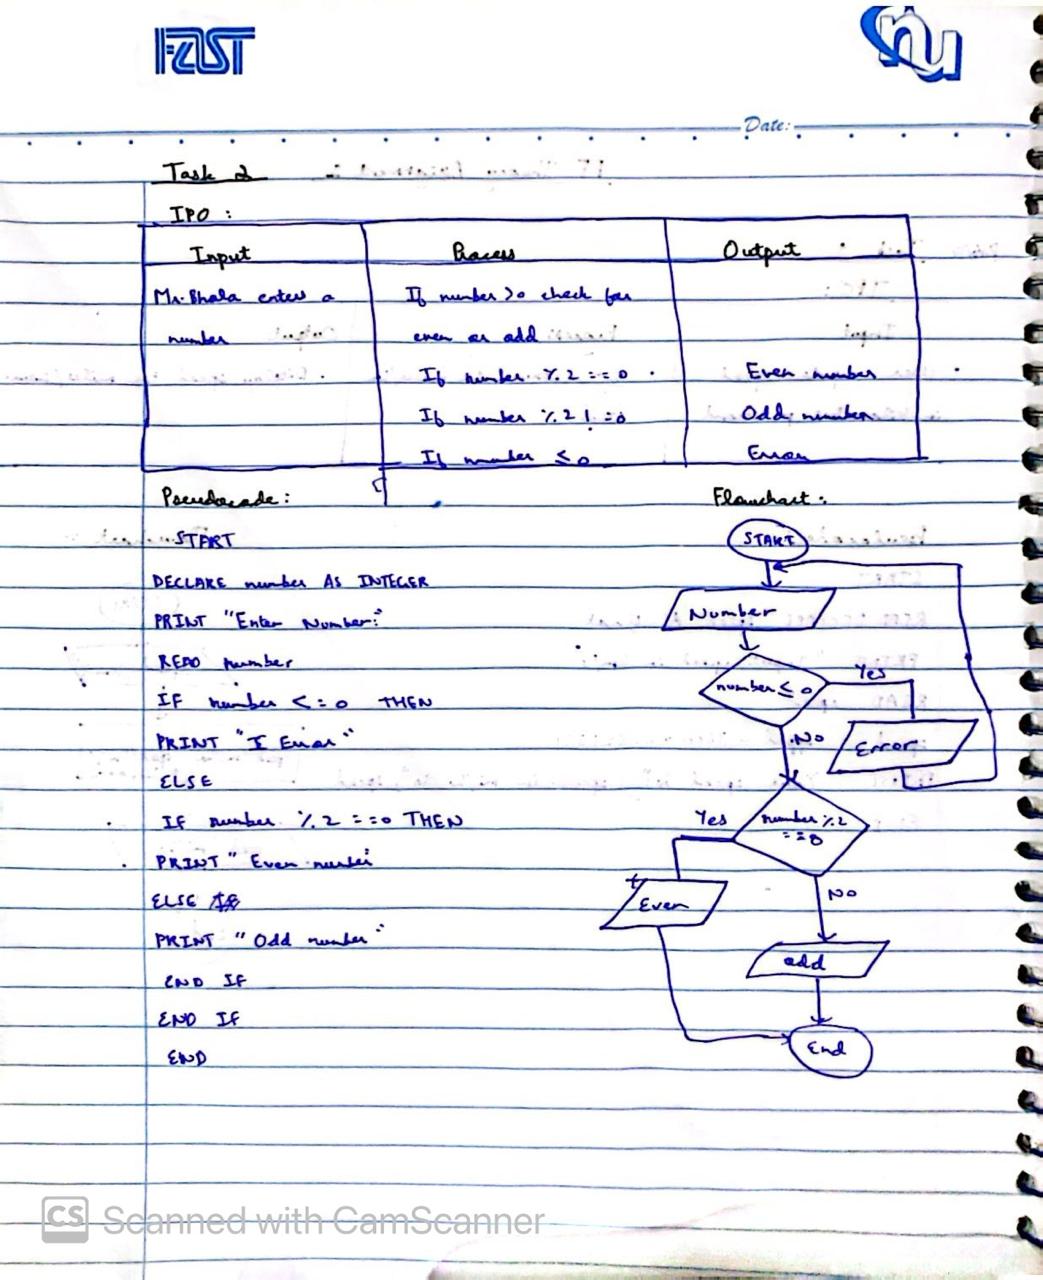 FAST
nu
Date:
Task 2
IPO :
Input Process Output
Mr. Bhala enters a If number >0 check for
number even or odd
If number %2 ==0 Even number
If number %2 ! =0 Odd number
If number ≤ 0 Error
Pseudocode:
START
DECLARE number AS INTEGER
PRINT "Enter Number:"
READ number
IF number <=0 THEN
PRINT "I Error"
ELSE
IF number %2 ==0 THEN
PRINT " Even number
ELSE
PRINT "Odd number"
END IF
END IF
END
Flowchart.
START
Number
number ≤ 0
Yes
Error
No
number %2
==0
Yes
Even
No
odd
End
CS Scanned with CamScanner